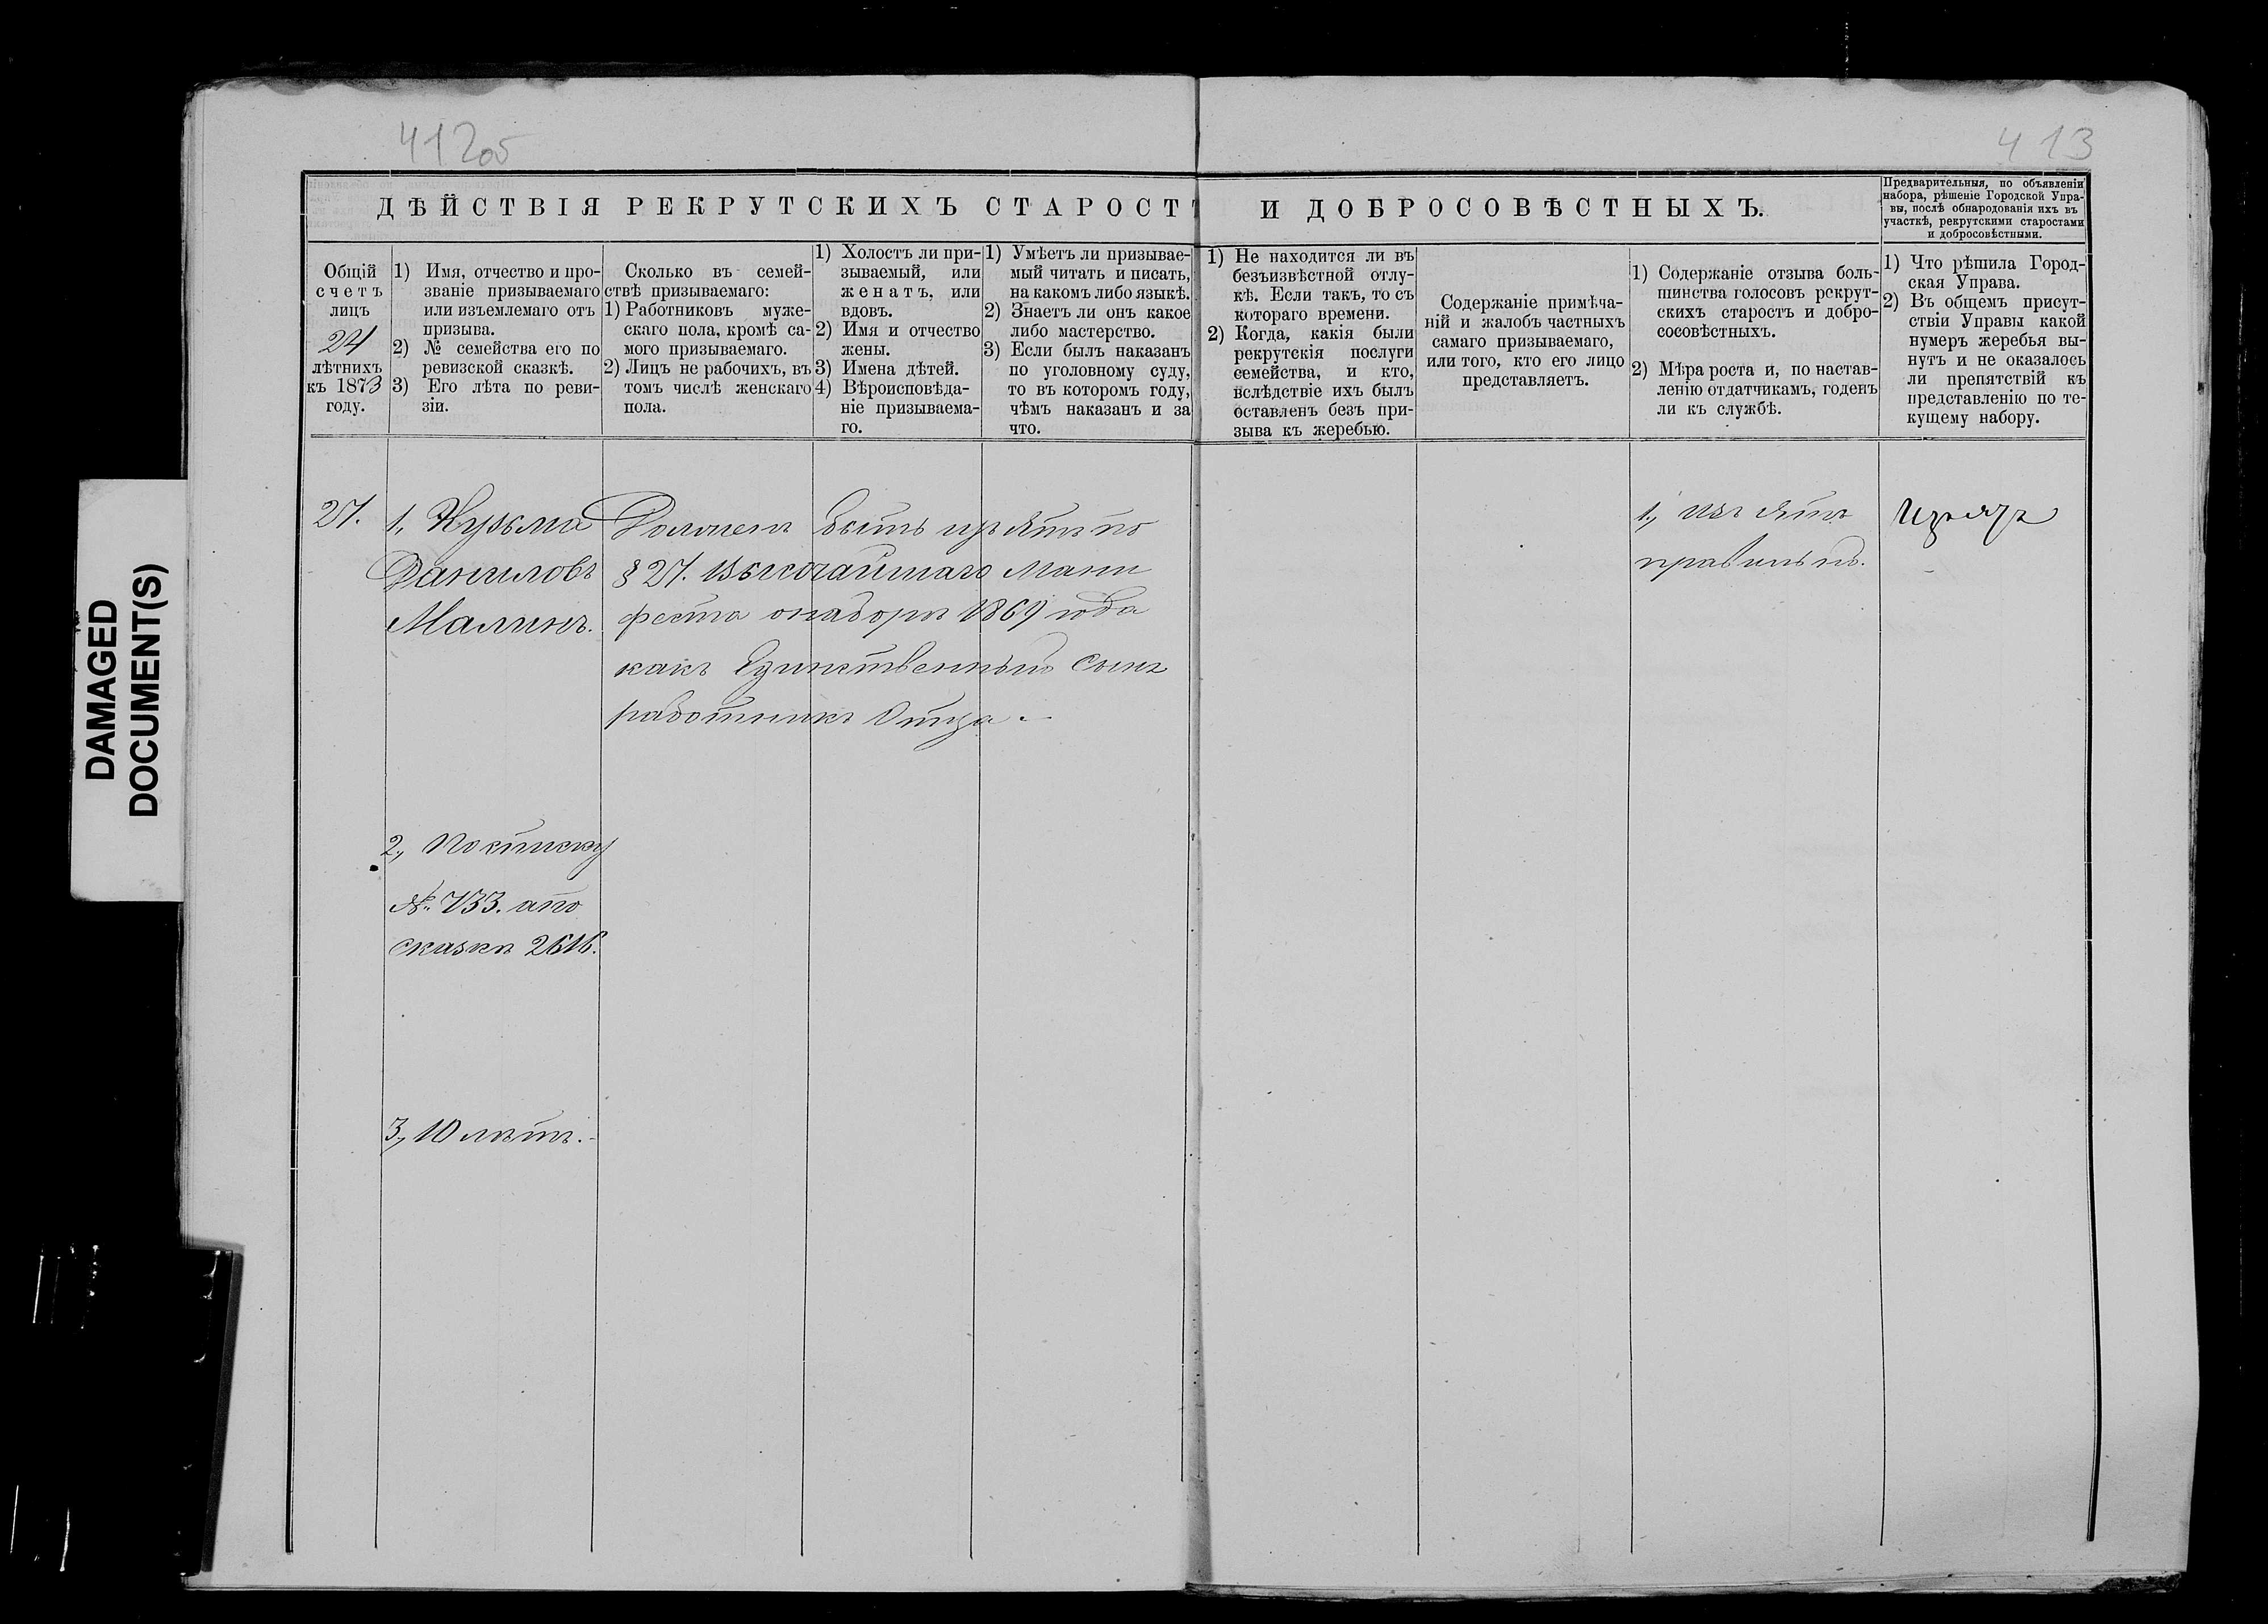 412об
413
ДѢЙСТВІЯ РЕКРУТСКИХЪ СТАРОСТЪ И ДОБРОСОВѢСТНЫХЪ.
Предварительныя, по объявленіи
набора, рѣшеніе Городской Упра-
вы, послѣ обнародованія ихъ въ
участкѣ, рекрутскими старостами
и добросовѣстными.
Общій
счетъ
лицъ
24
лѣтнихъ
къ 1873
году.
1) Имя, отчество и про-
званіе призываемаго
или изъемлемаго отъ
призыва.
2) № семейства его по
ревизской сказкѣ.
3) Его лѣта по реви-
зіи.
Сколько въ семей-
ствѣ призываемаго:
1) Работниковъ муже-
скаго пола, кромѣ са-
мого призываемаго.
2) Лицъ не рабочихъ, въ
томъ числѣ женскаго
пола.
1) Холостъ ли при-
зываемый, или
женатъ, или
вдовъ.
2) Имя и отчество
жены.
3) Имена дѣтей.
4) Вѣроисповѣда-
ніе призываема-
го.
1) Умѣетъ ли призывае-
мый читать и писать,
на какомъ либо языкѣ.
2) Знаетъ ли онъ какое
либо мастерство.
3) Если былъ наказанъ
по уголовному суду,
то въ которомъ году,
чѣмъ наказанъ и за
что.
1) Не находится ли въ
безъизвѣстной отлу-
кѣ. Если такъ, то съ
котораго времени.
2) Когда, какія были
рекрутскія послуги
семейства, и кто,
вслѣдствіе ихъ былъ
оставленъ безъ при-
зыва къ жеребью.
Содержаніе примѣча-
ній и жалобъ частныхъ
самаго призываемаго,
или того, кто его лицо
представляетъ.
1) Содержаніе отзыва боль-
шинства голосовъ рекрут-
скихъ старостъ и добро-
сосовѣстныхъ.
2) Мѣра роста и, по настав-
ленію отдатчикамъ, годенъ
ли къ службѣ.
1) Что рѣшила Город-
ская Управа.
2) Въ общемъ присут-
ствіи Управы какой
нумеръ жеребья вы-
нутъ и не оказалось
ли препятствій къ
представленію по те-
кущему набору.
27.
1, Кузьма
Даниловъ
Малинъ.
2, По списку
№ 733. а по
сказкѣ 2616.
3, 10 лѣтъ.
Долженъ быть изъятъ по
§ 27. Высочайшаго Мани
феста о наборѣ 1869 года
какъ Единственный Сынъ
работникъ Отца.
1, Изъятъ
правильно.
Изъятъ
DAMAGED
DOCUMENT(S)